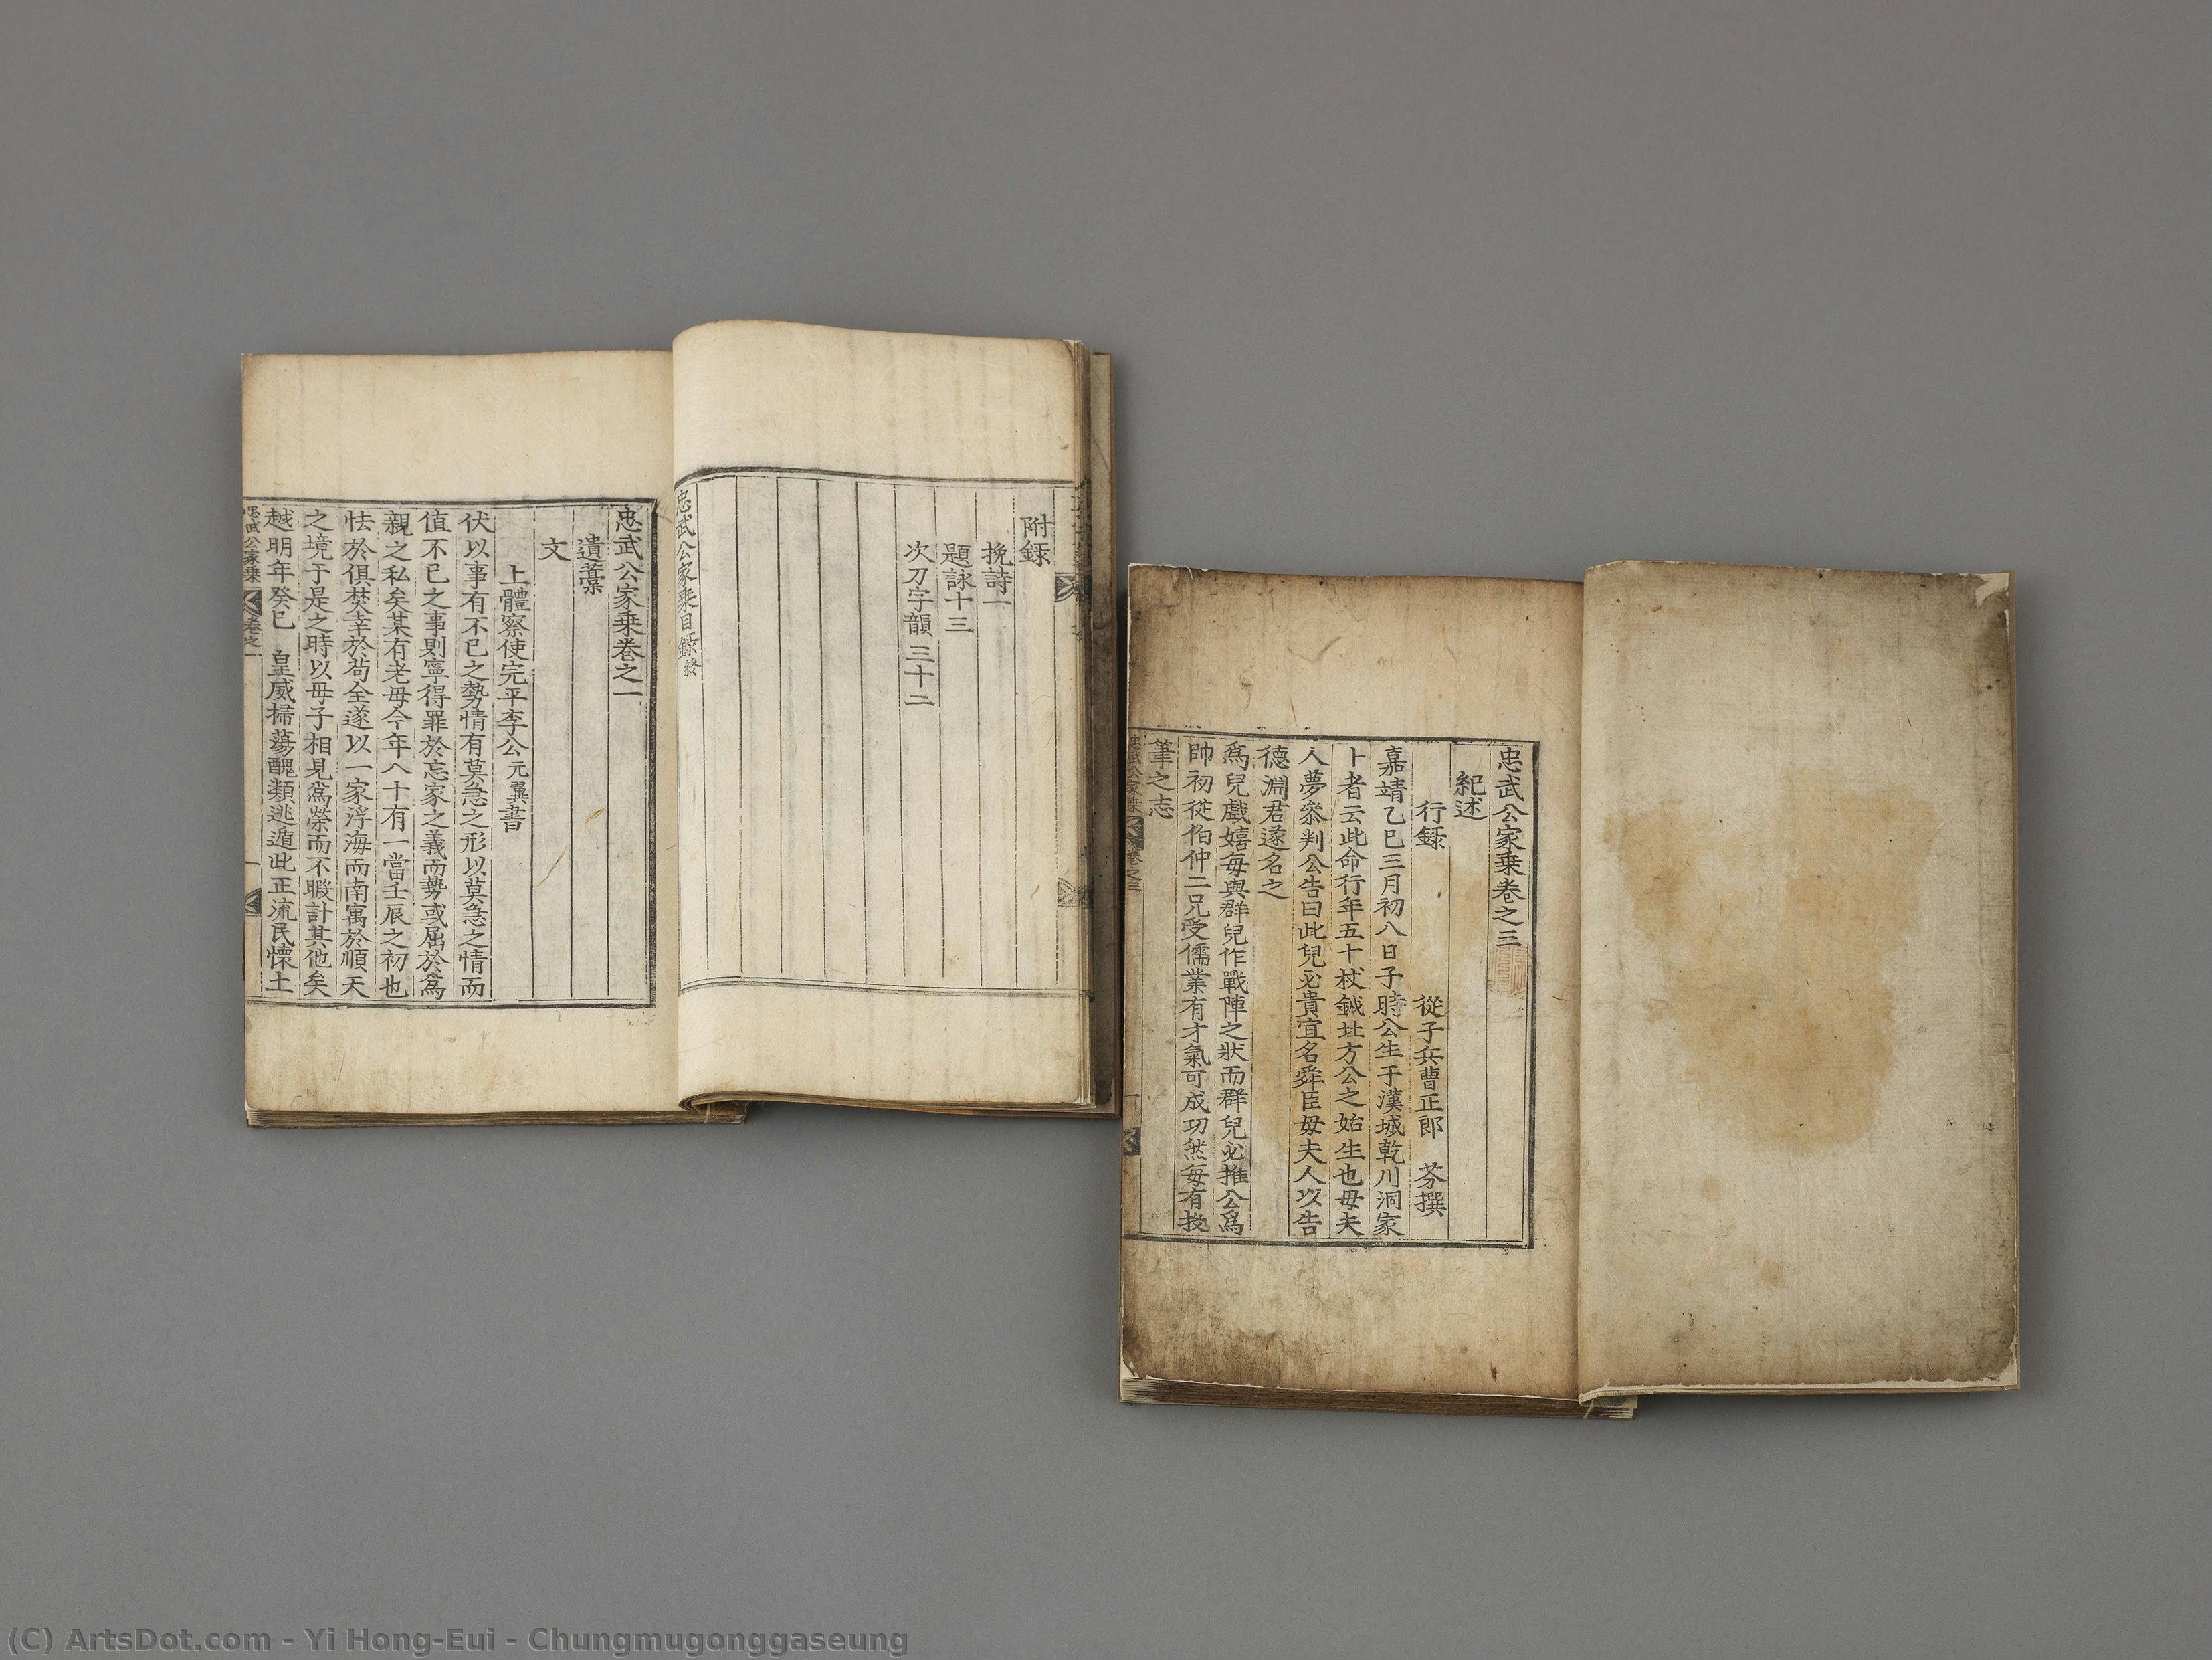 附録
挽詩一
題詠十三
次刀字韻 三十二
忠武公家乘目録終
忠武公家乘卷之一
遺藁
文
上體察使完平李公元翼書
伏以事有不已之勢情有莫急之形以莫急之情而
値不已之事則寧得罪於忘家之義而勢或屈於爲
親之私矣某有老母今年八十有一當壬辰之初也
怯於俱焚幸於苟全遂以一家浮海而南寓於順天
之境于是之時以母子相見爲榮而不暇計其他矣
越明年癸巳 皇威掃蕩醜類逃遁此正流民懷土
忠武公家乘 卷之一 一
忠武公家乘卷之三
紀述
行録 從子兵曹正郎 芬撰
嘉靖乙巳三月初八日子時公生于漢城乾川洞家
卜者云此命行年五十杖鉞北方公之始生也母夫
人夢叅判公告曰此兒必貴宜名舜臣母夫人以告
德淵君遂名之
爲兒戲嬉每與群兒作戰陣之狀而群兒必推公爲
帥初從伯仲二兄受儒業有才氣可成功然每有投
筆之志
忠武公家乘 卷之三 一
(C) ArtsDot.com - Yi Hong-Eui - Chungmugonggaseung